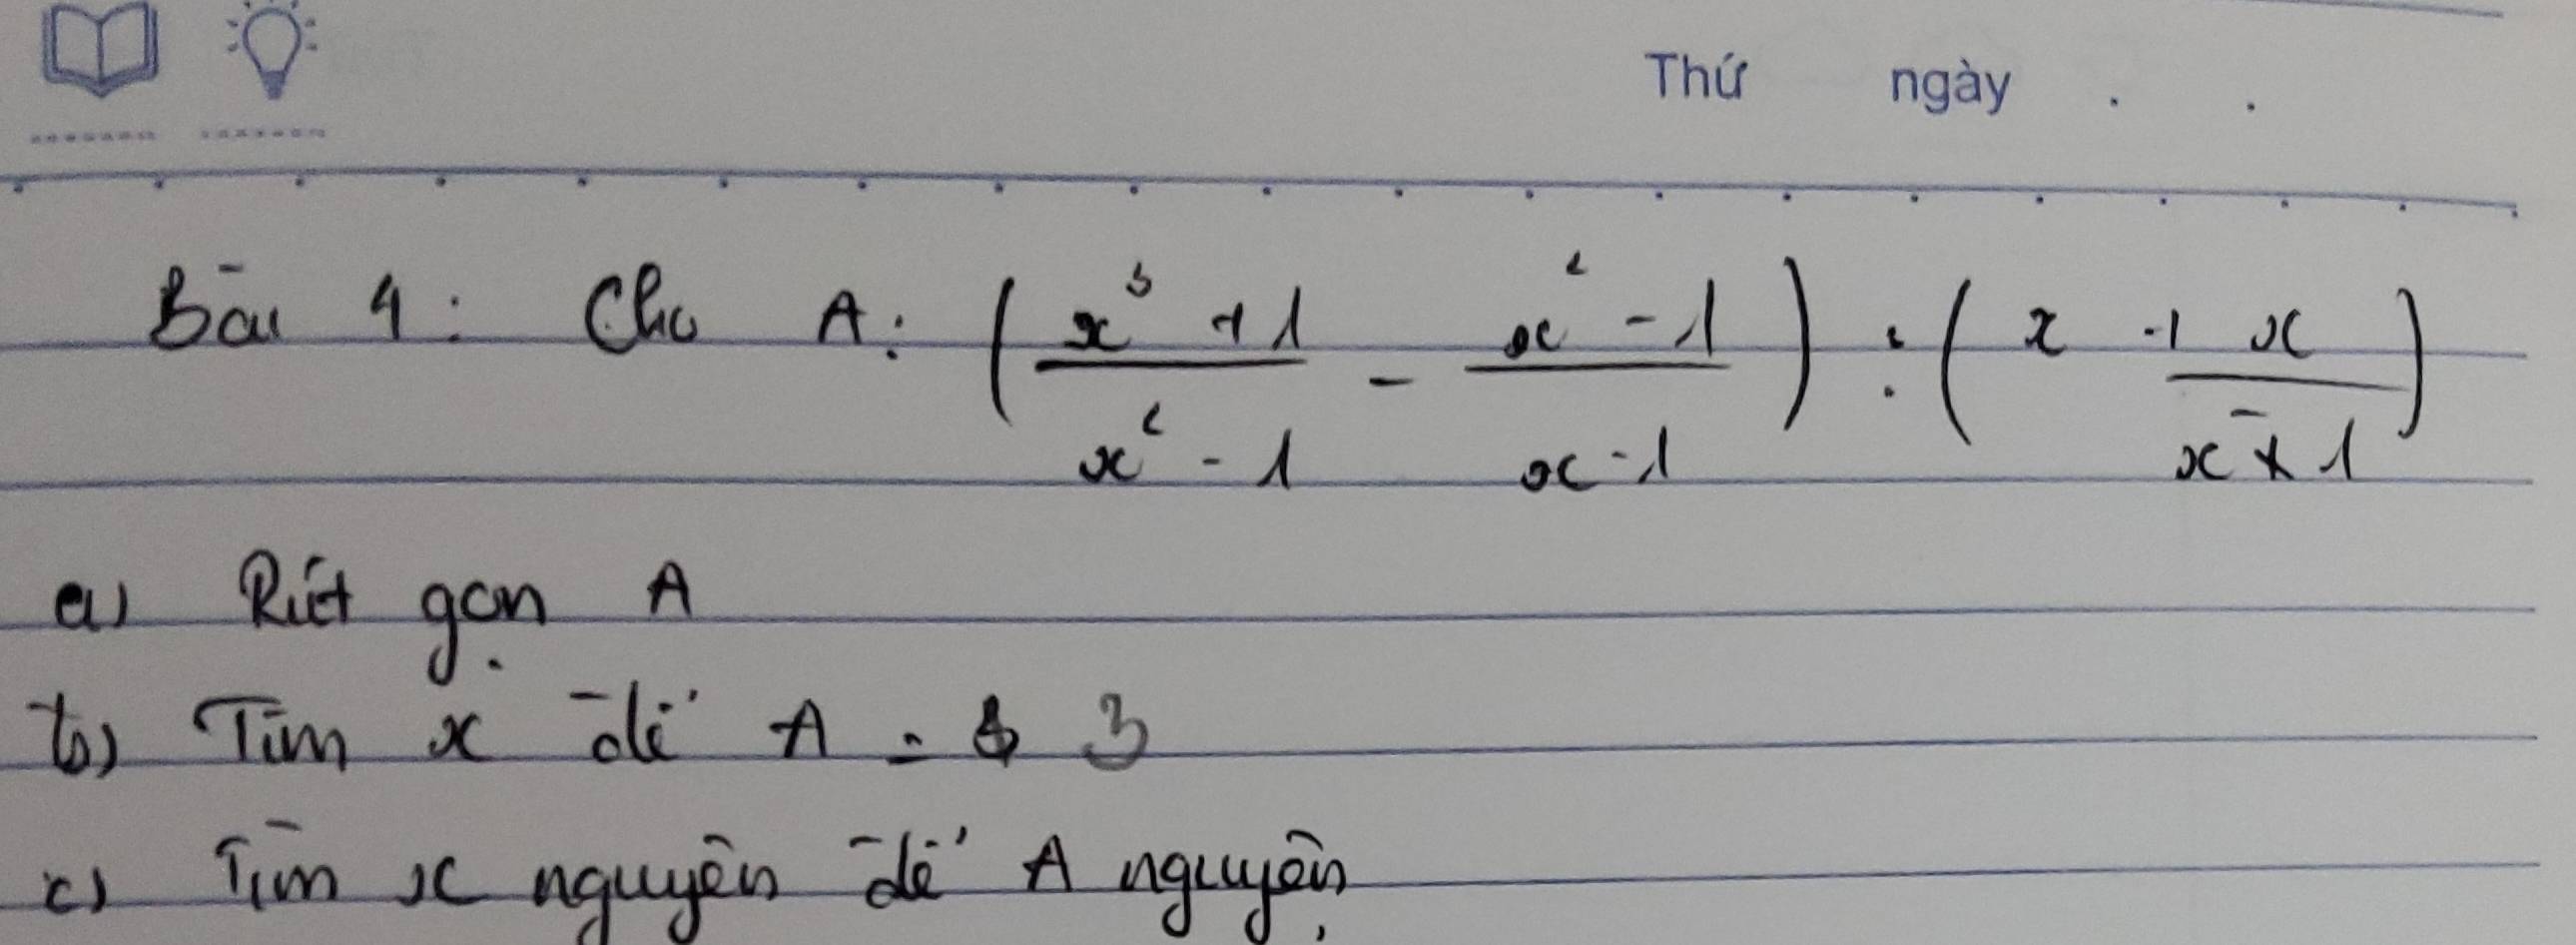 Thứ ngày . .
Bài 4: Cho A: ( x³ + 1 / x² - 1 - x² - 1 / x - 1 ) : ( x + x / x - 1 )
a) Rút gọn A
b) Tìm x để A = 3
c) Tìm x nguyên để A nguyên